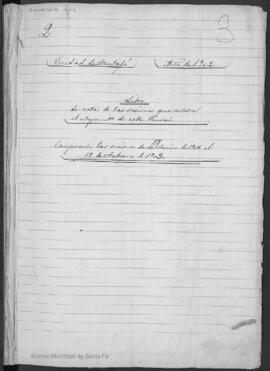 2 3
Ciudad de Santafé Año de 1902
Libro
de actas de las sesiones que celebra
el Ayuntº de esta Ciudad
Comprende las sesiones de de 1902 al
12 de Febrero de 1903.
Archivo Municipal de Santa Fe